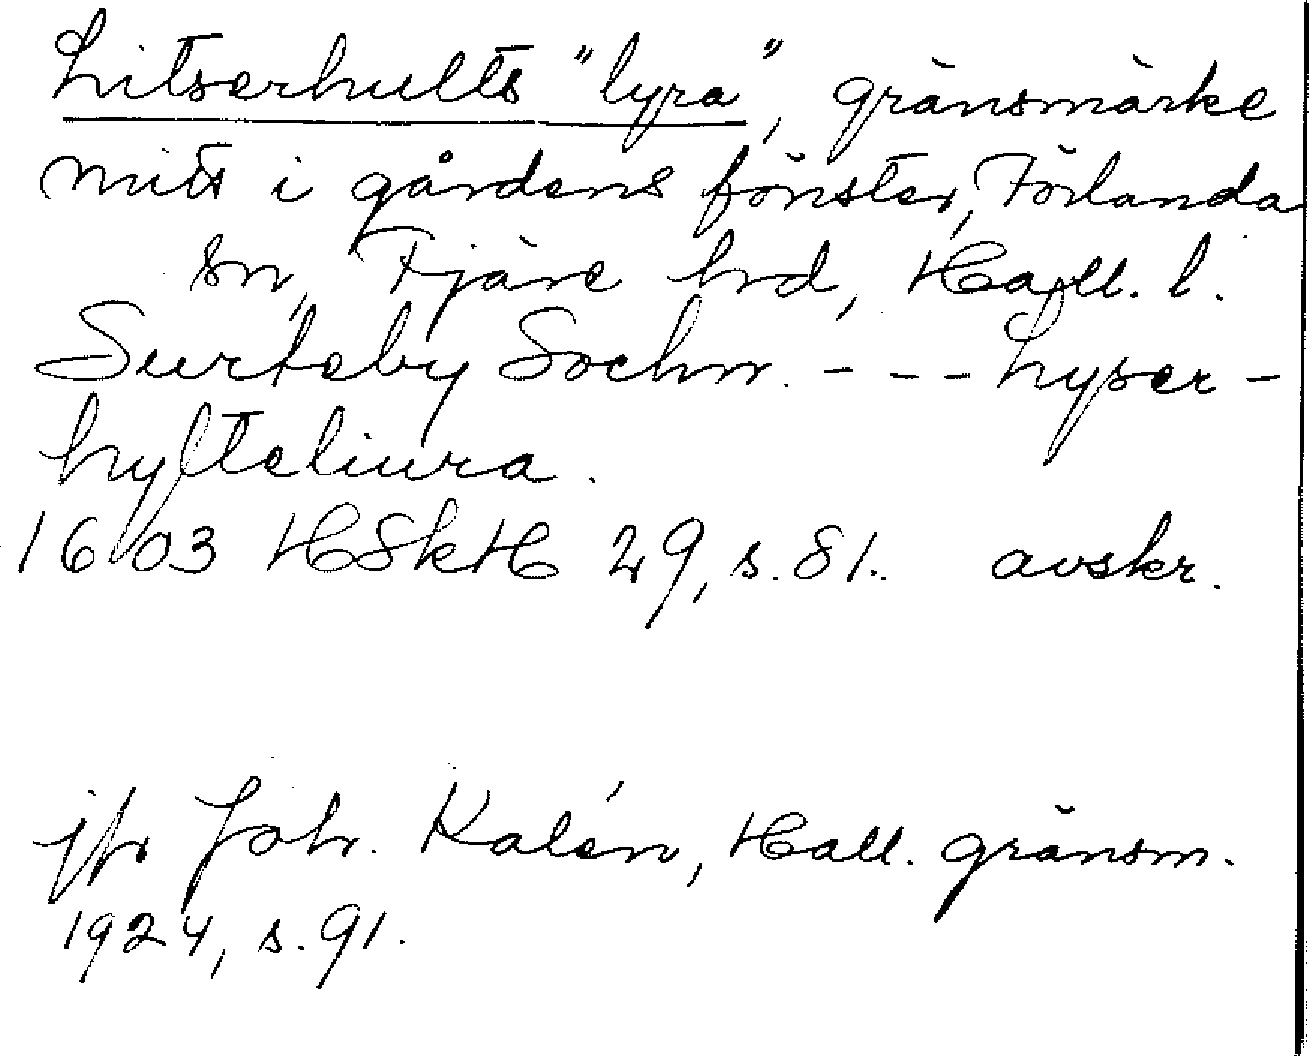 Litserhults "lyra", gränsmärke
mitt i gårdens fönster, Förlanda
sn, Fjäre hrd, Hall. l.
Surteby Sochn. - - - Lyser-
hylteliura.
1603 HSkH 29, s. 81. avskr.
jfr Joh. Kalén, Hall. gränsm.
1924, s. 91.